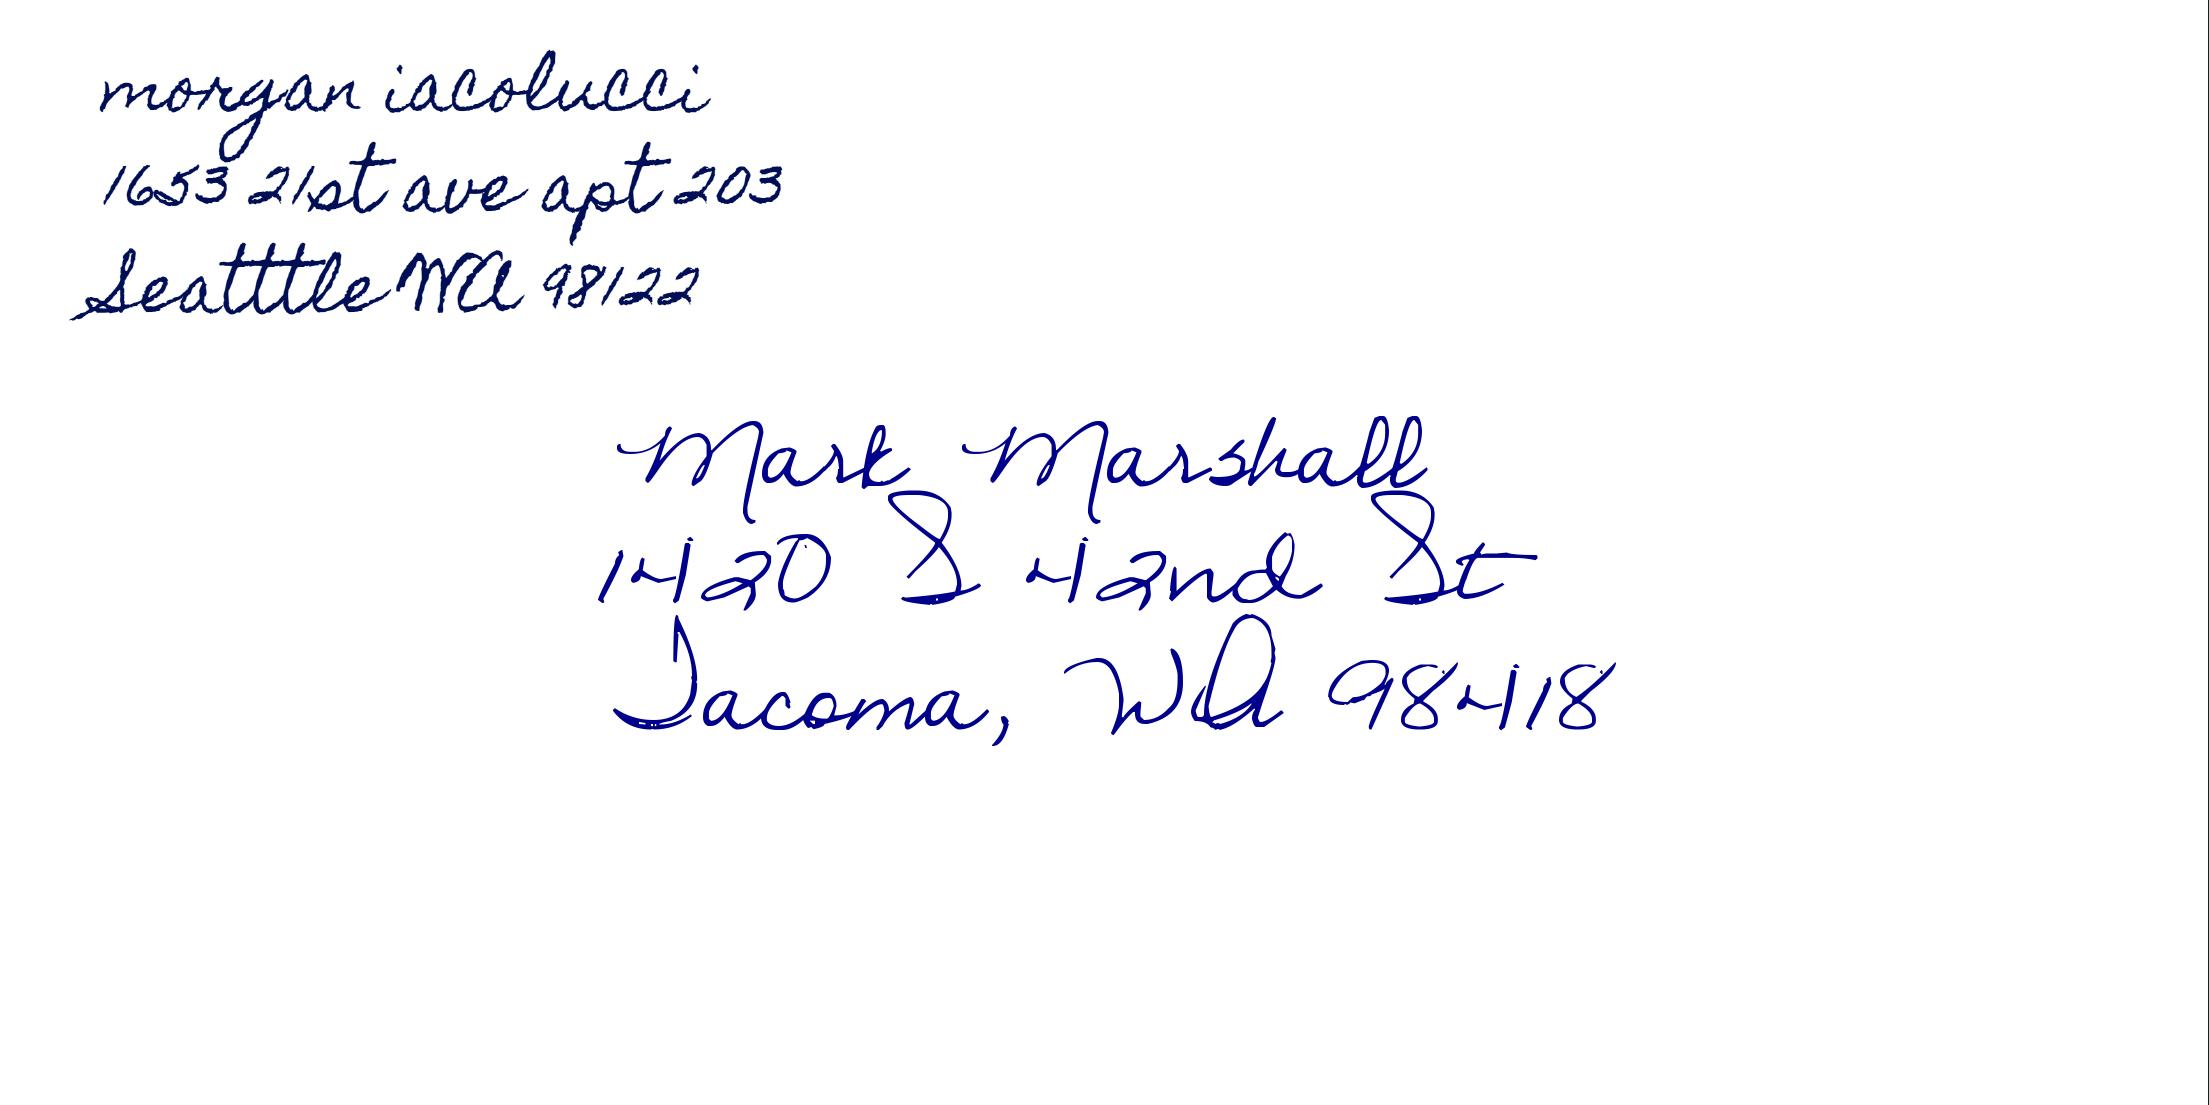 morgan iacolucci
1653 21st ave apt 203
Seatttle WA 98122
Mark Marshall
1420 S 42nd St
Tacoma, WA 98418